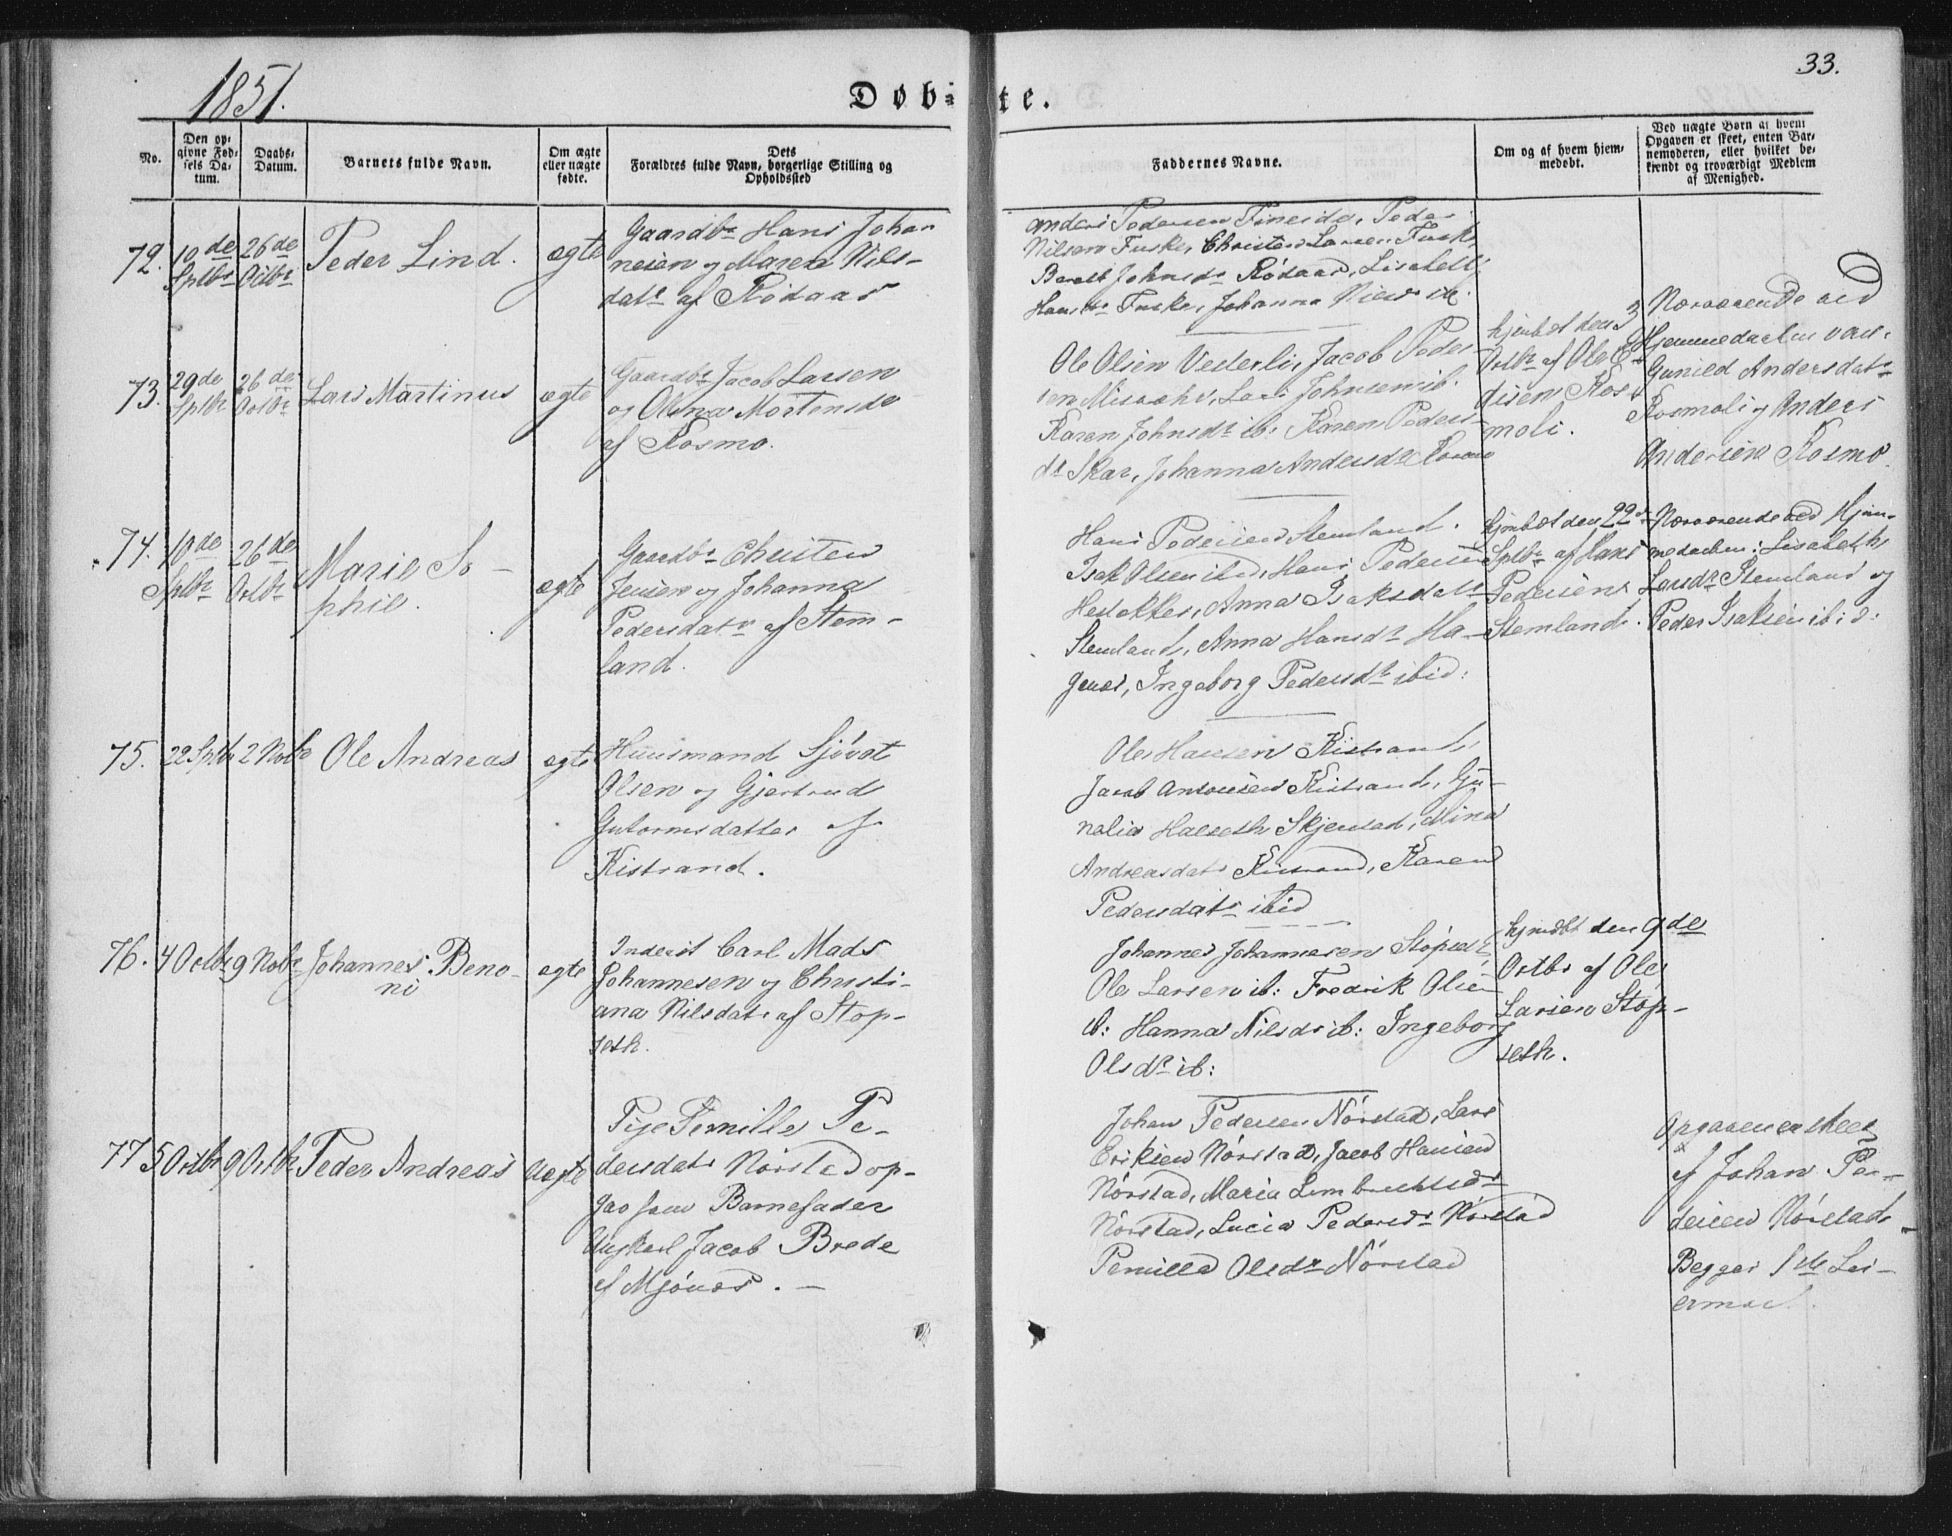 1851.
33.
Døb-
te.
No.
Den op-
givne Fød-
sels Da-
tum.
Daabs-
Datum.
Barnets fulde Navn.
Om ægte
eller uægte
fødte.
Dets
Forældres fulde Navn, borgerlige Stilling og
Opholdssted
Faddernes Navne.
Om og af hvem hjem-
medøbt.
Ved uægte Børn at hvem
Opgaven er skeet, enten Bar-
nemoderen, eller hvilket be-
kjendt og troværdigt Medlem
af Menighed.
72.
10de
Sptbr
26de
Octbr
Peder Lind.
ægte
Gaardbr Hans Johan
nesen og Maren Nils-
datr af Rødaas
Anders Pedersen Fineide, Peder
Nilsen Fuske, Christen Larsen Fuske
Berett Johnsdr Rødaas, Lisabeth
Hansdr Fuske, Johanna
73.
29de
Sptbr
26de
Octbr
Lars Martinus
ægte
Gaardbr Jacob Larsen
og Olina Mortensdr
af Kosmo.
Ole Olsen Vesterli, Jacob Peder-
sen Misvær, Lars Johnsen ib.
Karen Johnsdr ib: Karen Peders-
dr Skar, Johanna Andersdr Kosmo
hjmbøt den 3
Octbr af Ole
Kos-
moli.
Nærværende ved
Hjemmedaaben var
Gunild Andersdatr
Kosmoli og Anders
Andersen Kosmo.
74.
10de
Sptbr
26de
Octbr
Marie So-
phie.
ægte
Gaardbr Christen
Jensen og Johanna
Pedersdatr af Stem-
land.
Hans Pedersen Stemland.
Isak Olsen ibid, Hans Pedersen
Hestekker, Anna Isaksdatr
Stemland, Anna Hansdr Ha-
genes, Ingeborg Pedersdr ibid:
hjmbøt den 22de
Sptbr af Hans
Pedersen
Stemland.
Nærværende ved Hjem-
medaaben: Lisabeth
Larsdr Stemland og
Peder Isaksen ibid:
75.
22 Sptbr
2 Nobr
Ole Andreas
ægte
Huusmand Sjøvat
Olsen og Gjertrud
Gutormsdatter af
Kistrand.
Ole Hansen Kistrand,
Jacob Antonsen Kistrand, Gu-
nelia Halseth Skjerstad, Mina
Andreasdatr Kistrand, Karen
Pedersdatr ibid
76.
4 Octbr
9 Nobr
Johannes Beno-
ni
ægte
Inderst Carl Mads
Johannesen og Christi-
ana Nilsdatr af Stop-
seth.
Johannes Johannesen Stopseth
Ole Larsen ib: Fredrik Olsen
ib: Hanna Nilsdr ib: Ingeborg
Olsdr ib:
hjmdbt den 9de
Octbr af Ole
Larsen Stop-
seth.
77
5 Octbr
9 Octbr
Peder Andreas
uægte
Pige Pernille Pe-
dersdatr Nørstad op-
gav som Barnefader
Ungkarl Jacob Brede
af Mjønes.
Johan Pedersen Nørstad, Lars
Eriksen Nørstad, Jacob Hansen
Nørstad, Maria Lembrechtsdr
Nørstad, Lucia Pedersdr Nørstad
Pernilla Olsdr Nørstad
Opgaven er skeet
af Johan Pe-
dersen Nørstad
Begges 1ste Lei-
ermaal.